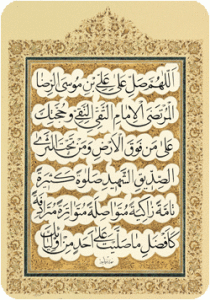 اللهم صل على علي بن موسى الرضا
المرتضى الإمام التقي النقي وحجتك
على من فوق الأرض ومن تحت الثرى
الصديق الشهيد صلوة كثيرة
تامة زاكية متواصلة متواترة مترادفة
كأفضل ما صليت على أحد من أوليائك